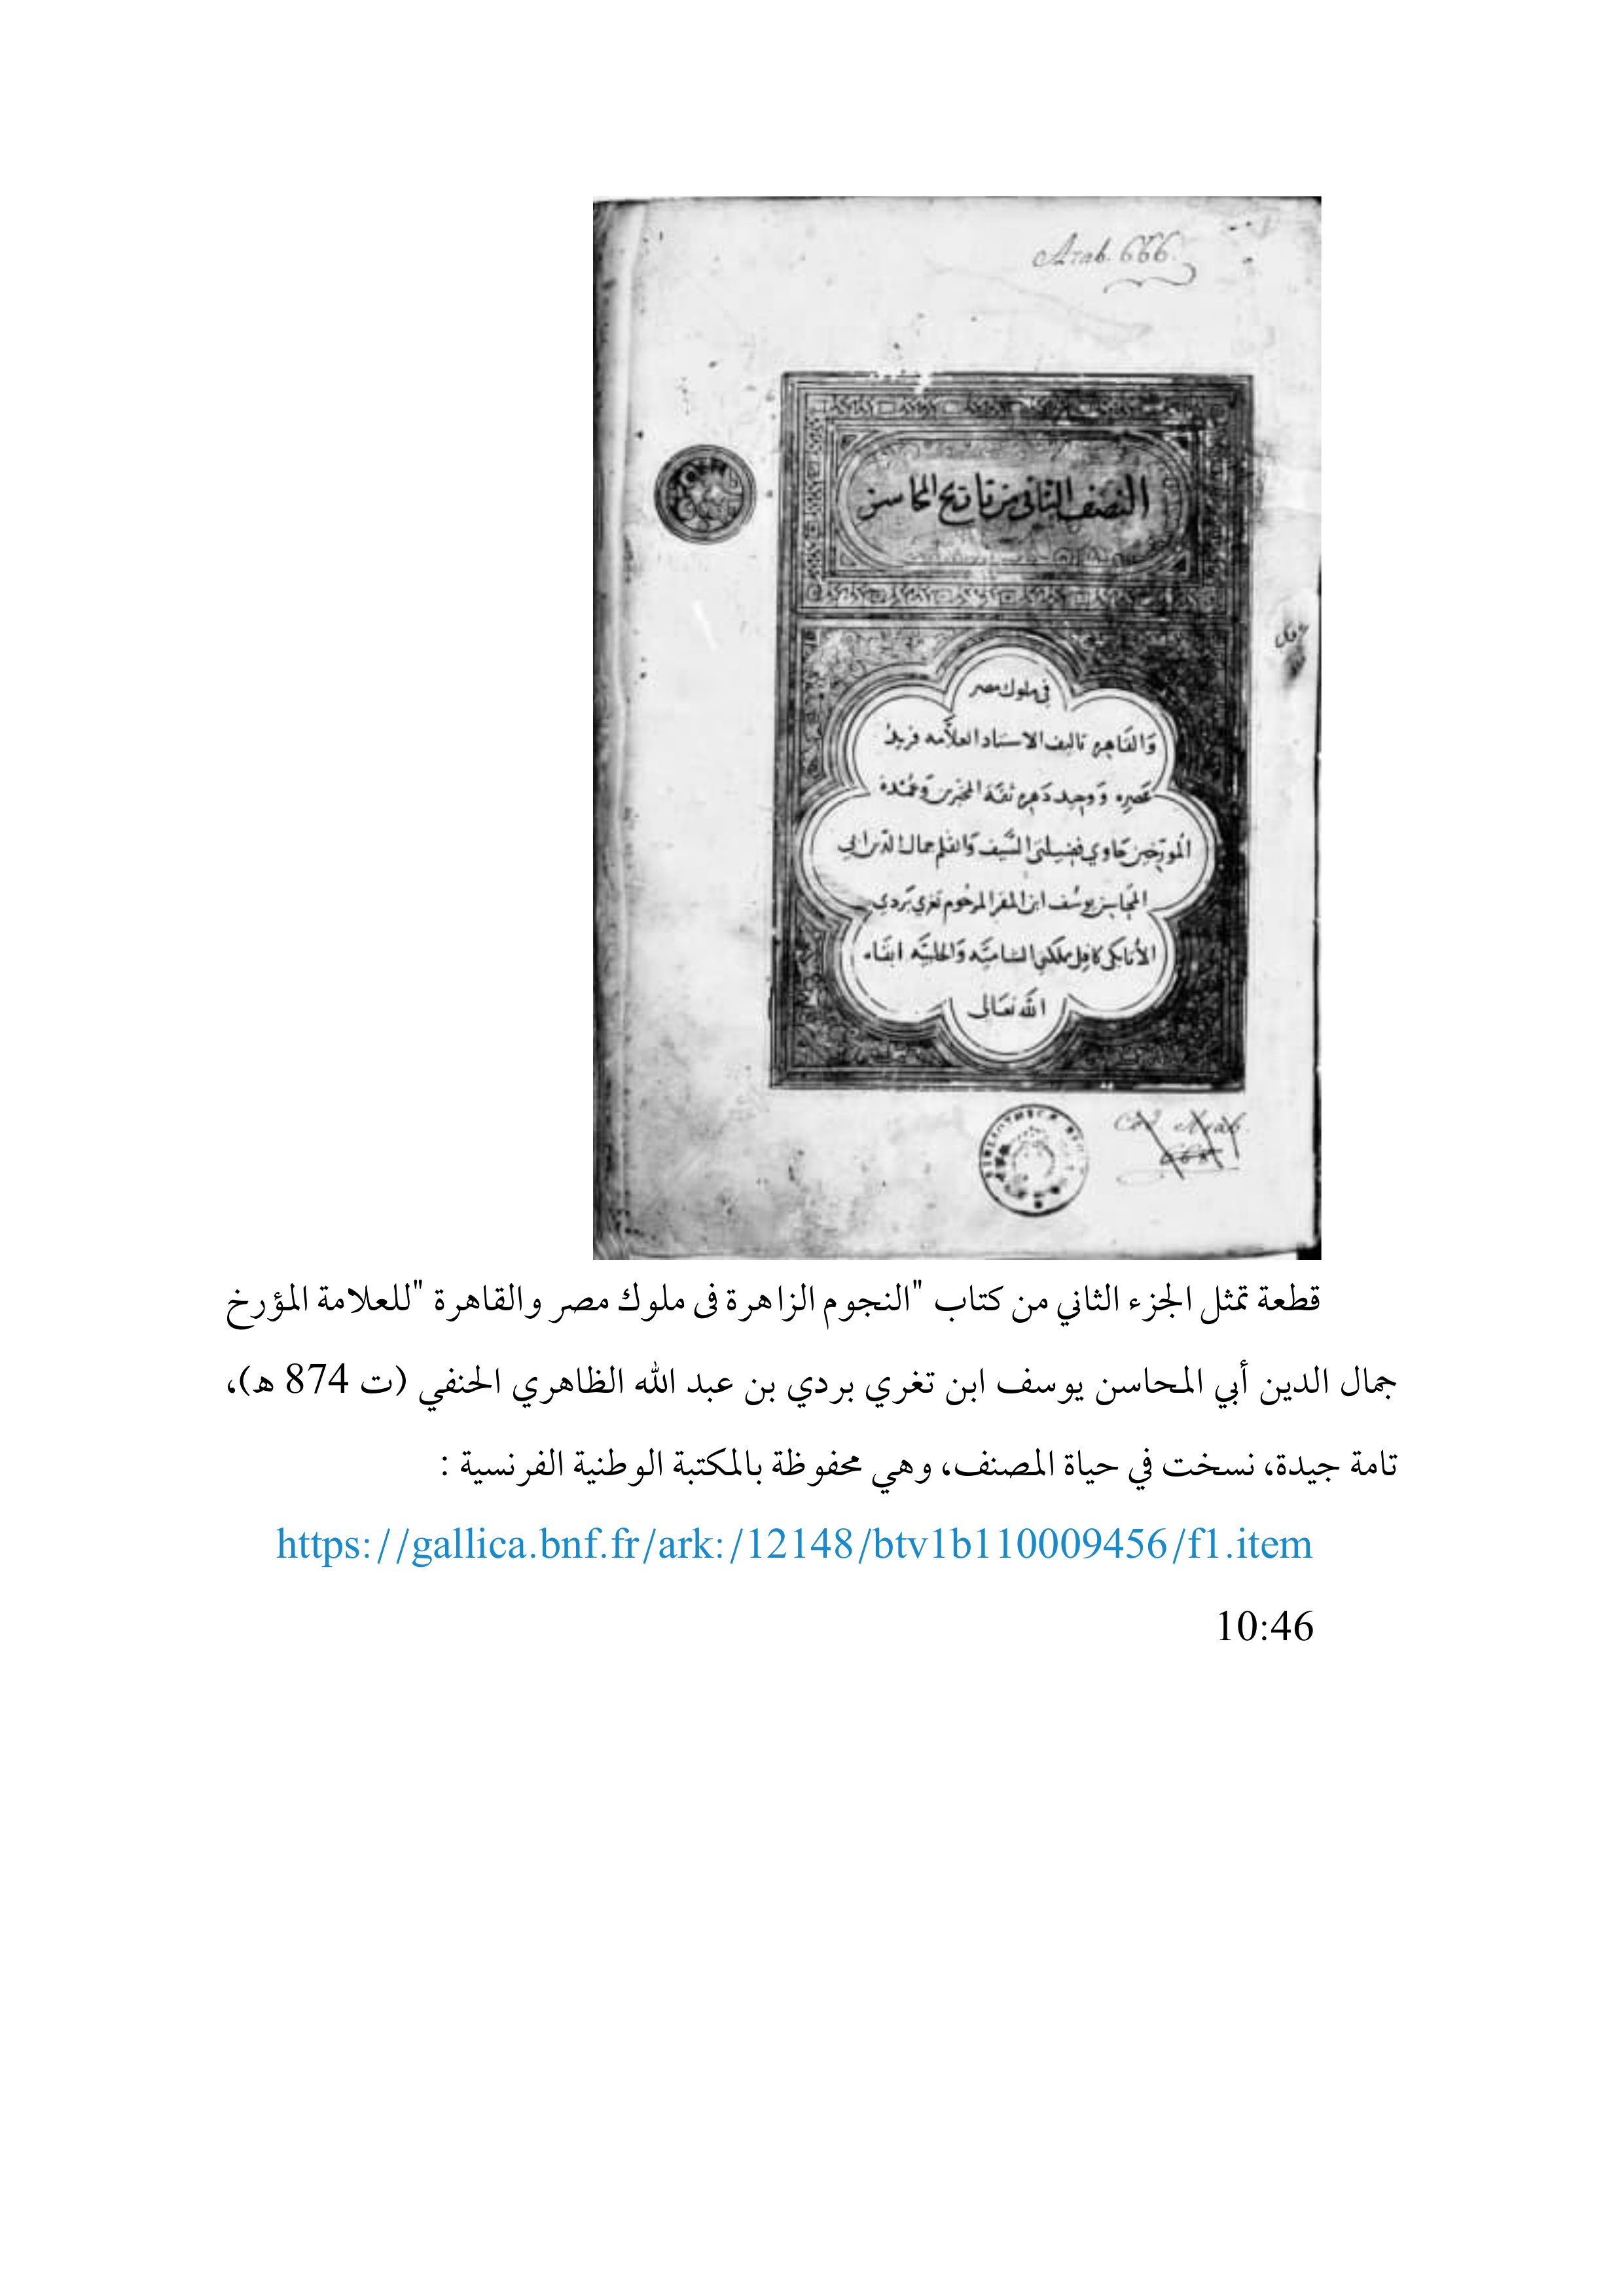 Arab. 666.
النصف الثاني من تاريخ المحاسن
في ملوك مصر
وَالقَاهِره تاليف الاستاد العلاَّمه فريد
عَصره وَوحيد دَهره ثقة المخبرين وَعُمدة
المُورّخين حَاوي فضيلتى السَّيف وَالقلم جمال الدّين ابى
المحَاسِن يوسُف ابن المقر المرحُوم تغري بَردي
الأتابكى كافِل مملكتى الشاميَّه وَالحلبيَّه ابقاه
الله تعَالى
Cod. Arab.
قطعة تمثل الجزء الثاني من كتاب "النجوم الزاهرة فى ملوك مصر والقاهرة "للعلامة المؤرخ
جمال الدين أبي المحاسن يوسف ابن تغري بردي بن عبد الله الظاهري الحنفي (ت 874 هـ)،
تامة جيدة، نسخت في حياة المصنف، وهي محفوظة بالمكتبة الوطنية الفرنسية :
https://gallica.bnf.fr/ark:/12148/btv1b110009456/f1.item
10:46